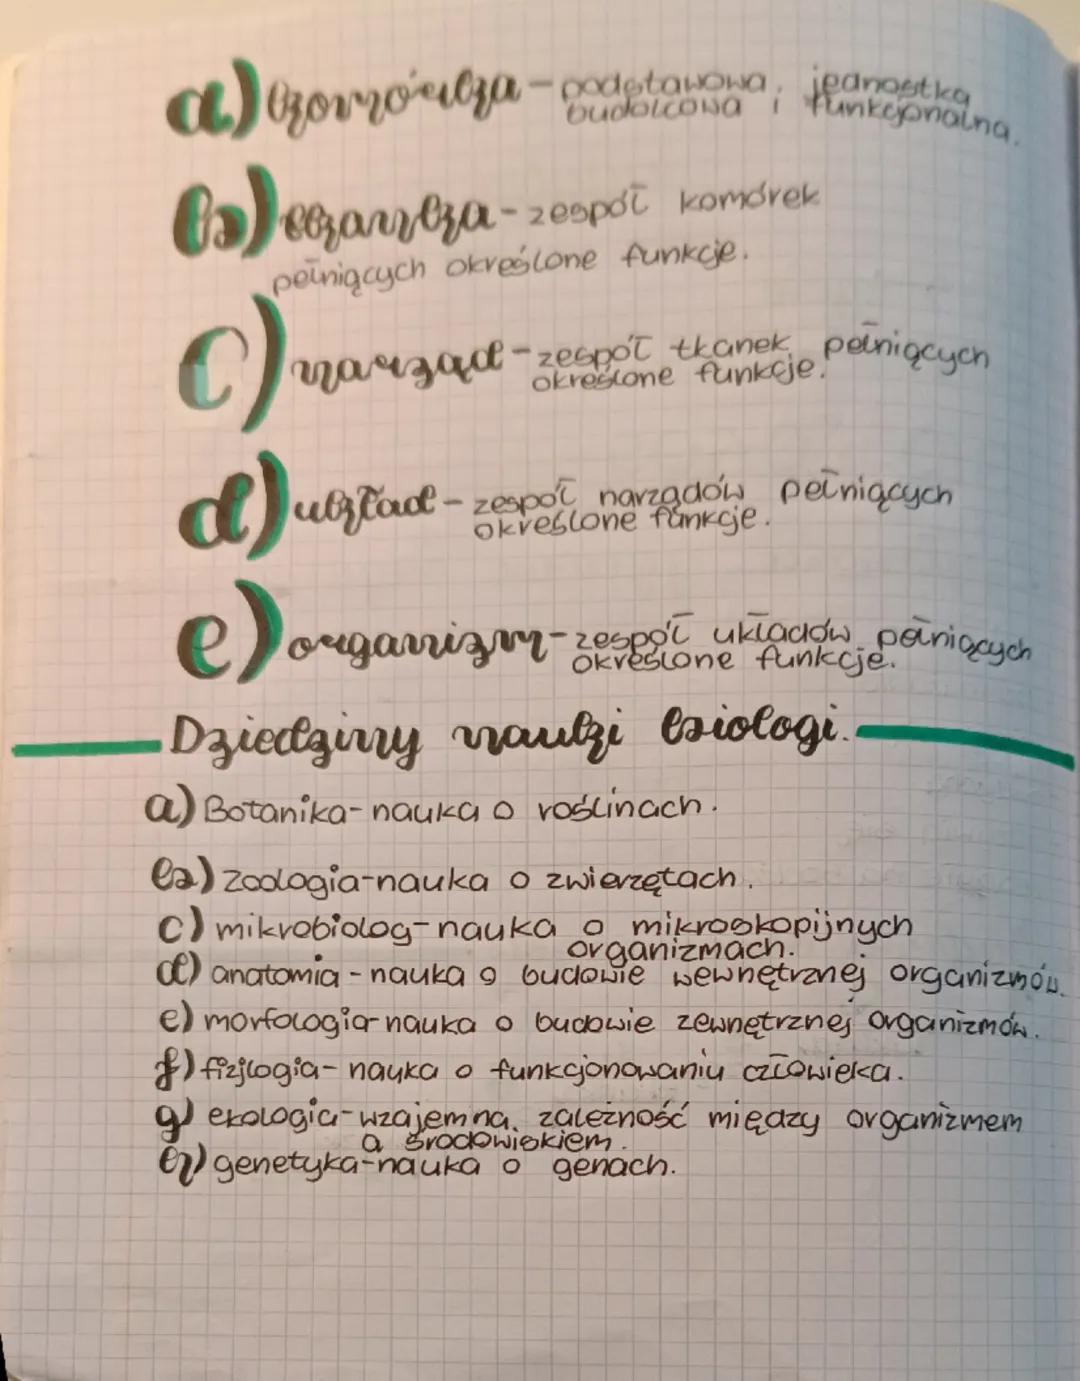 a) komórka - podstawowa jednostka
budulcowa i funkcjonalna.
b) tkanka - zespół komórek
pełniących określone funkcje.
c) narząd - zespół tkanek pełniących
określone funkcje.
d) układ - zespół narządów pełniących
określone funkcje.
e) organizm - zespół układów pełniących
określone funkcje.
Dziedziny nauki biologi.
a) Botanika - nauka o roślinach.
b) zoologia - nauka o zwierzętach.
c) mikrobiolog - nauka o mikroskopijnych
organizmach.
d) anatomia - nauka o budowie wewnętrznej organizmów.
e) morfologia - nauka o budowie zewnętrznej organizmów.
f) fizjlogia - nauka o funkcjonowaniu człowieka.
g) ekologia - wzajemna zależność między organizmem
a środowiskiem.
h) genetyka - nauka o genach.